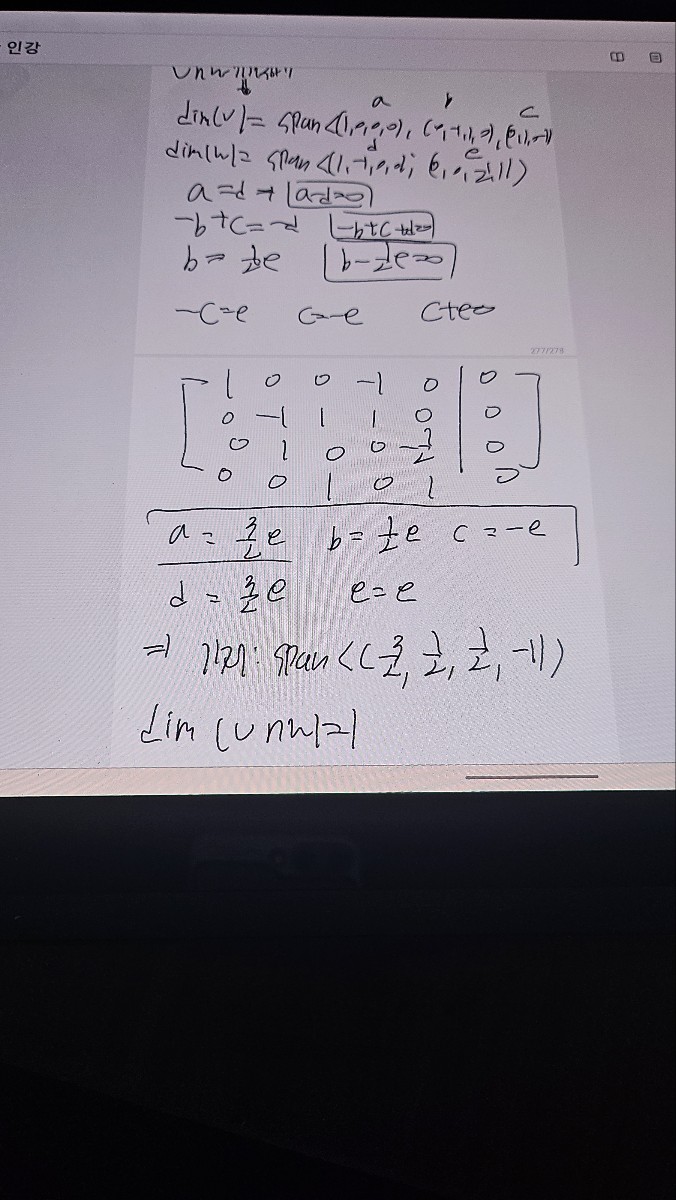 인강
U∩W 기저찾기
a b c
dim(U)= span<(1,0,0,0), (0,-1,1,0), (0,1,0,-1)
d e
dim(W)= span<(1,-1,0,0), (0,0,½,1)>
a=d → a-d=0
-b+c=-d -b+c+d=0
b=½e b-½e=0
-c=e c=-e c+e=0
277/279
1 0 0 -1 0 | 0
0 -1 1 1 0 | 0
0 1 0 0 -½ | 0
0 0 1 0 1 0
a = 3/2 e b = ½e c = -e
d = 3/2 e e=e
⇒ 기저: span<(3/2, ½, ½, -1)>
dim (U∩W)=1